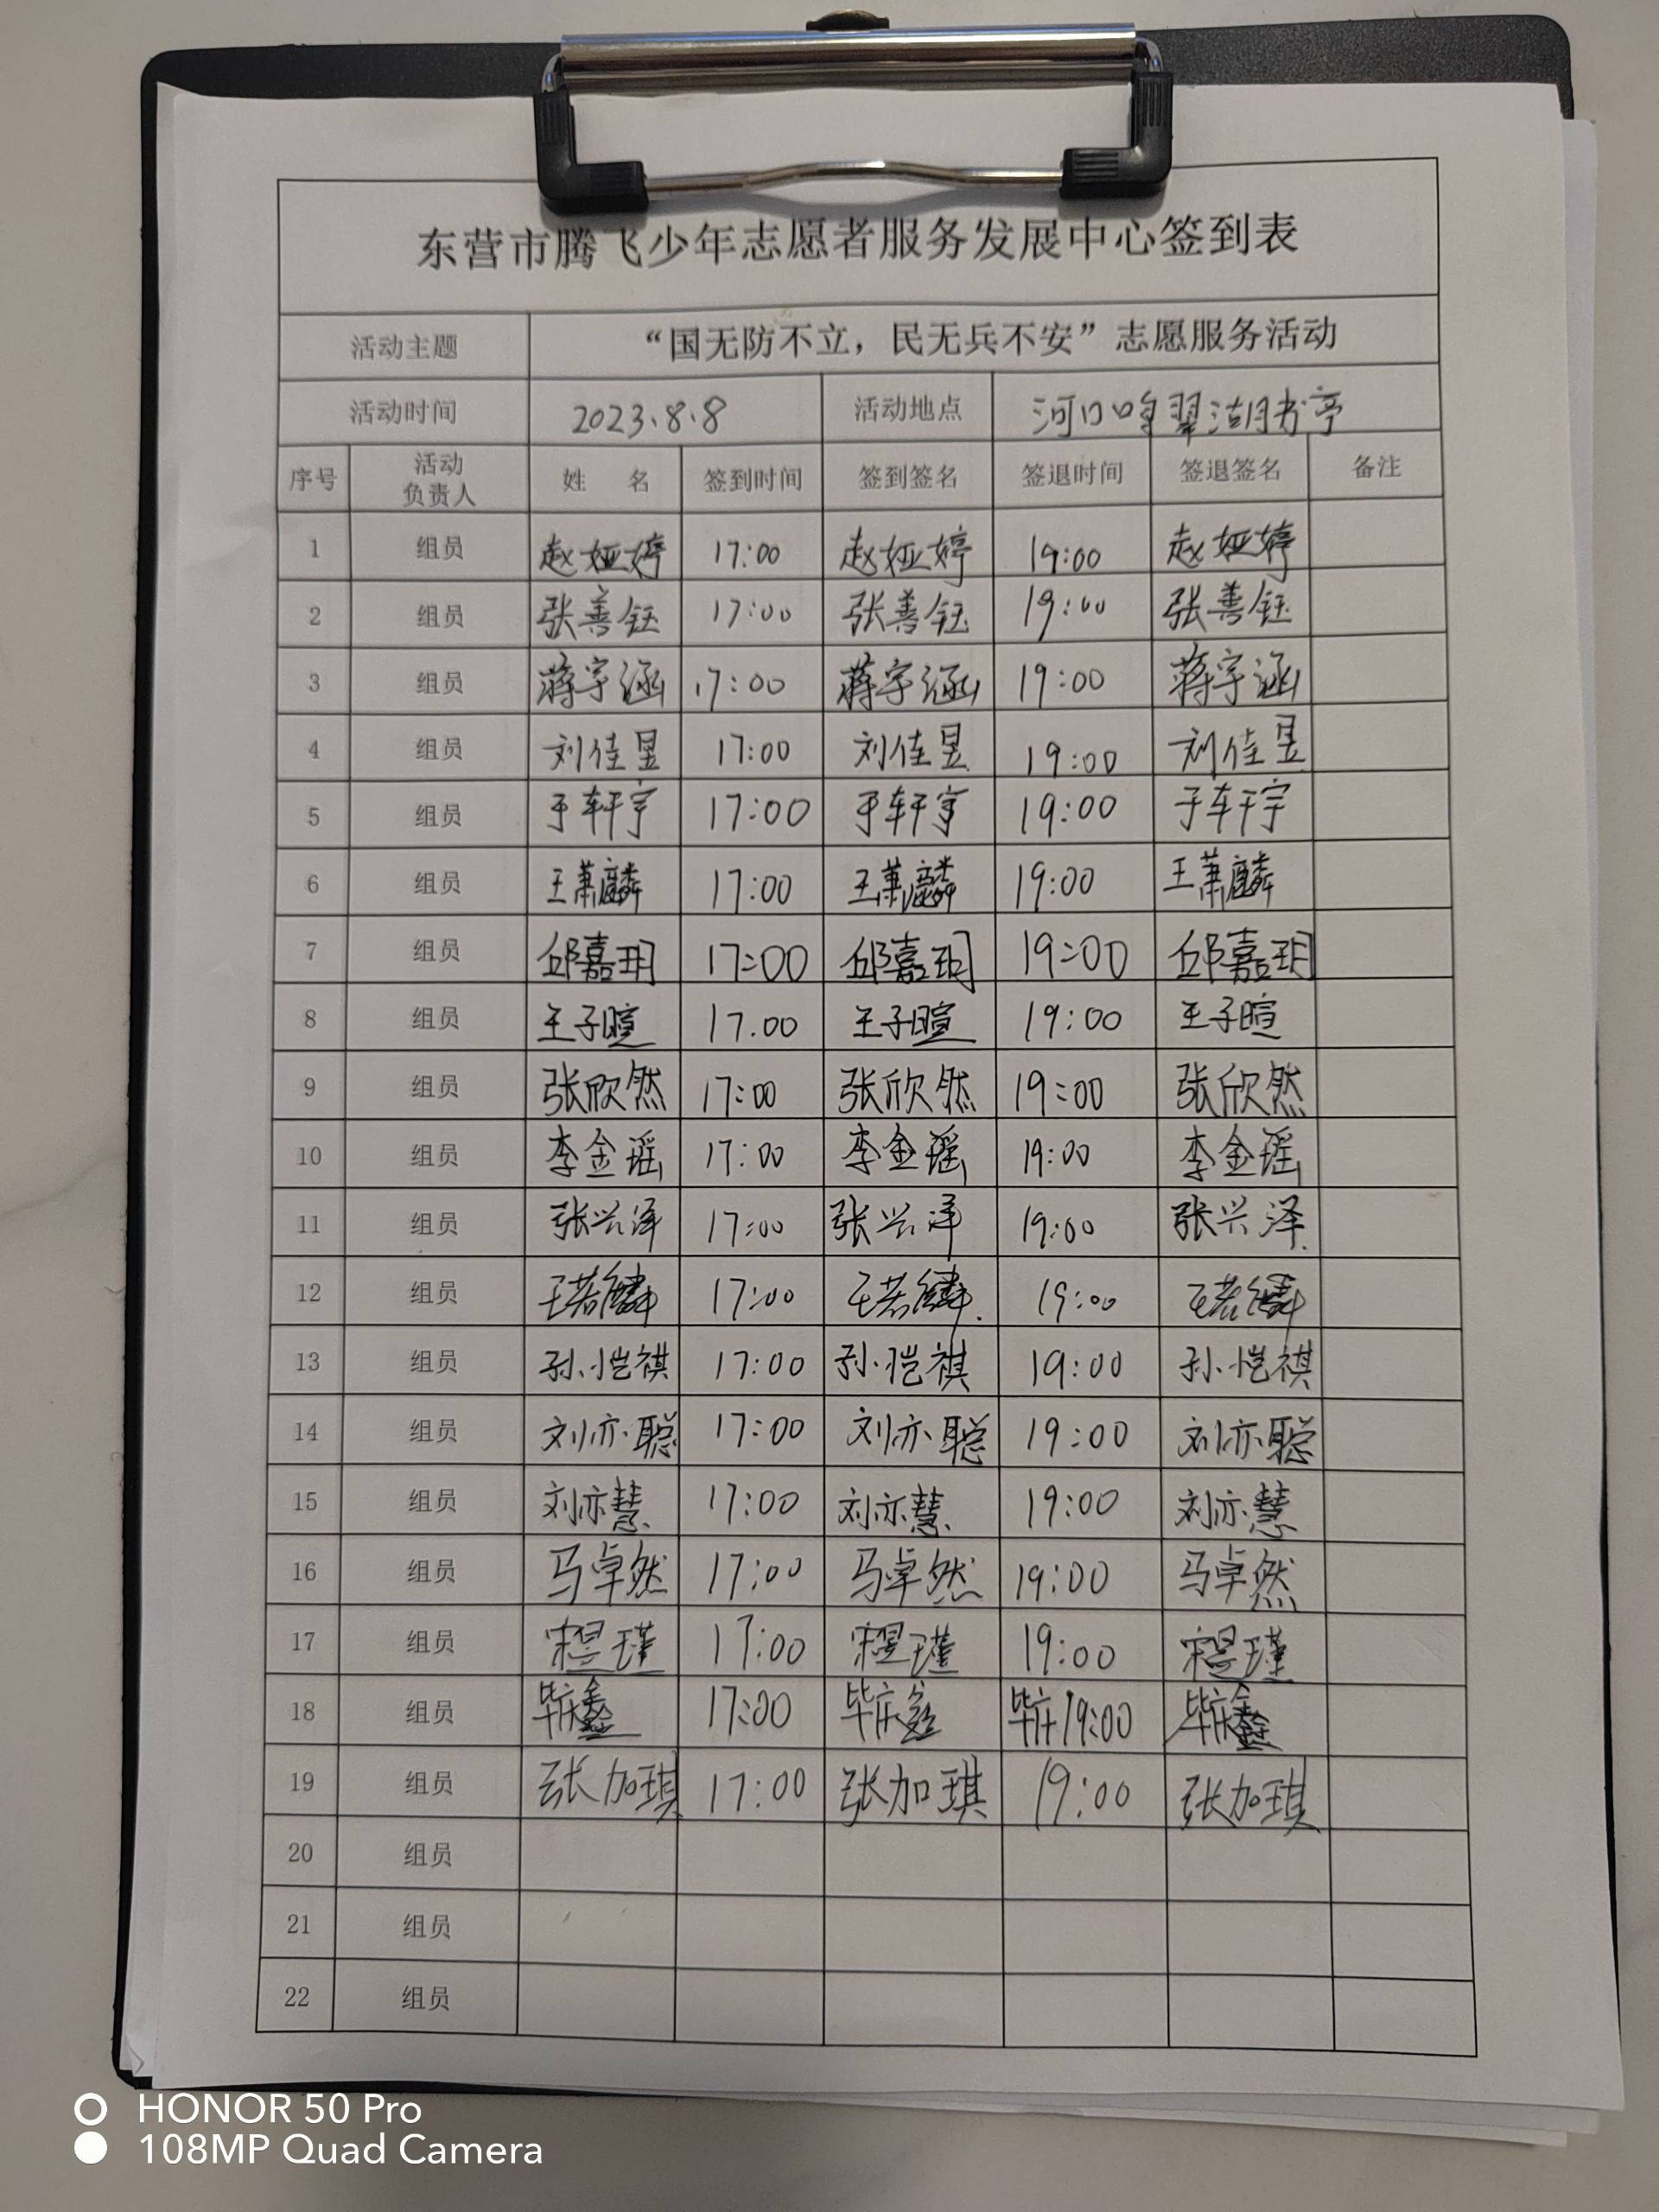 东营市腾飞少年志愿者服务发展中心签到表
活动主题 “国无防不立，民无兵不安”志愿服务活动
活动时间 2023.8.8 活动地点 河口鸣翠湖书亭
序号 活动负责人 姓 名 签到时间 签到签名 签退时间 签退签名 备注
1 组员 赵娅婷 17:00 赵娅婷 19:00 赵娅婷
2 组员 张善钰 17:00 张善钰 19:00 张善钰
3 组员 蒋宇涵 17:00 蒋宇涵 19:00 蒋宇涵
4 组员 刘佳昱 17:00 刘佳昱 19:00 刘佳昱
5 组员 于轩宇 17:00 于轩宇 19:00 于轩宇
6 组员 王萧麟 17:00 王萧麟 19:00 王萧麟
7 组员 邱嘉玥 17:00 邱嘉玥 19:00 邱嘉玥
8 组员 王子暄 17.00 王子暄 19:00 王子暄
9 组员 张欣然 17:00 张欣然 19:00 张欣然
10 组员 李金瑶 17:00 李金瑶 19:00 李金瑶
11 组员 张兴泽 17:00 张兴泽 19:00 张兴泽
12 组员 王若麟 17:00 王若麟 19:00 王若麟
13 组员 孙恺祺 17:00 孙恺祺 19:00 孙恺祺
14 组员 刘亦聪 17:00 刘亦聪 19:00 刘亦聪
15 组员 刘亦慧 17:00 刘亦慧 19:00 刘亦慧
16 组员 马卓然 17:00 马卓然 19:00 马卓然
17 组员 宋昱瑾 17:00 宋昱瑾 19:00 宋昱瑾
18 组员 毕庆鑫 17:00 毕庆鑫 毕庆19:00 毕庆鑫
19 组员 张加琪 17:00 张加琪 19:00 张加琪
20 组员
21 组员
22 组员
HONOR 50 Pro
108MP Quad Camera